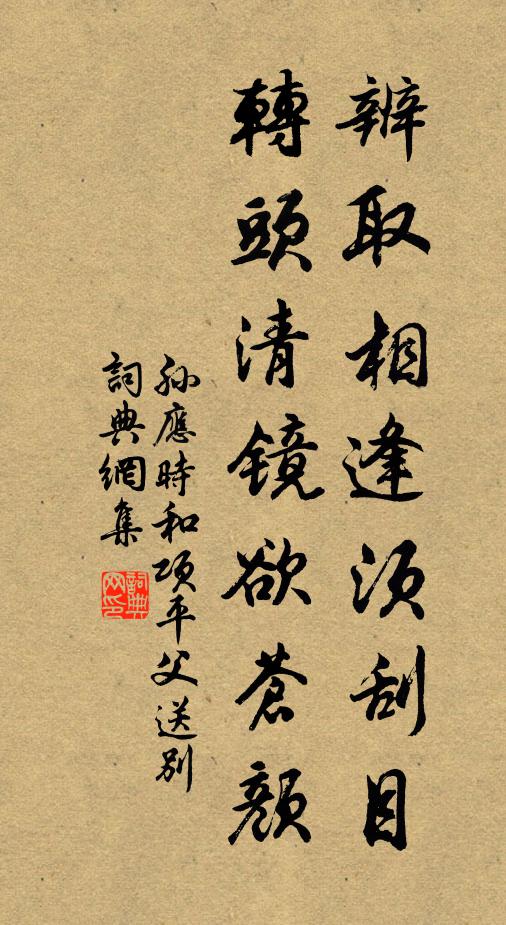 辨取相逢須刮目
轉頭清鏡欲蒼顏
孫應時和項平父送別
詞典網集
詞典網印